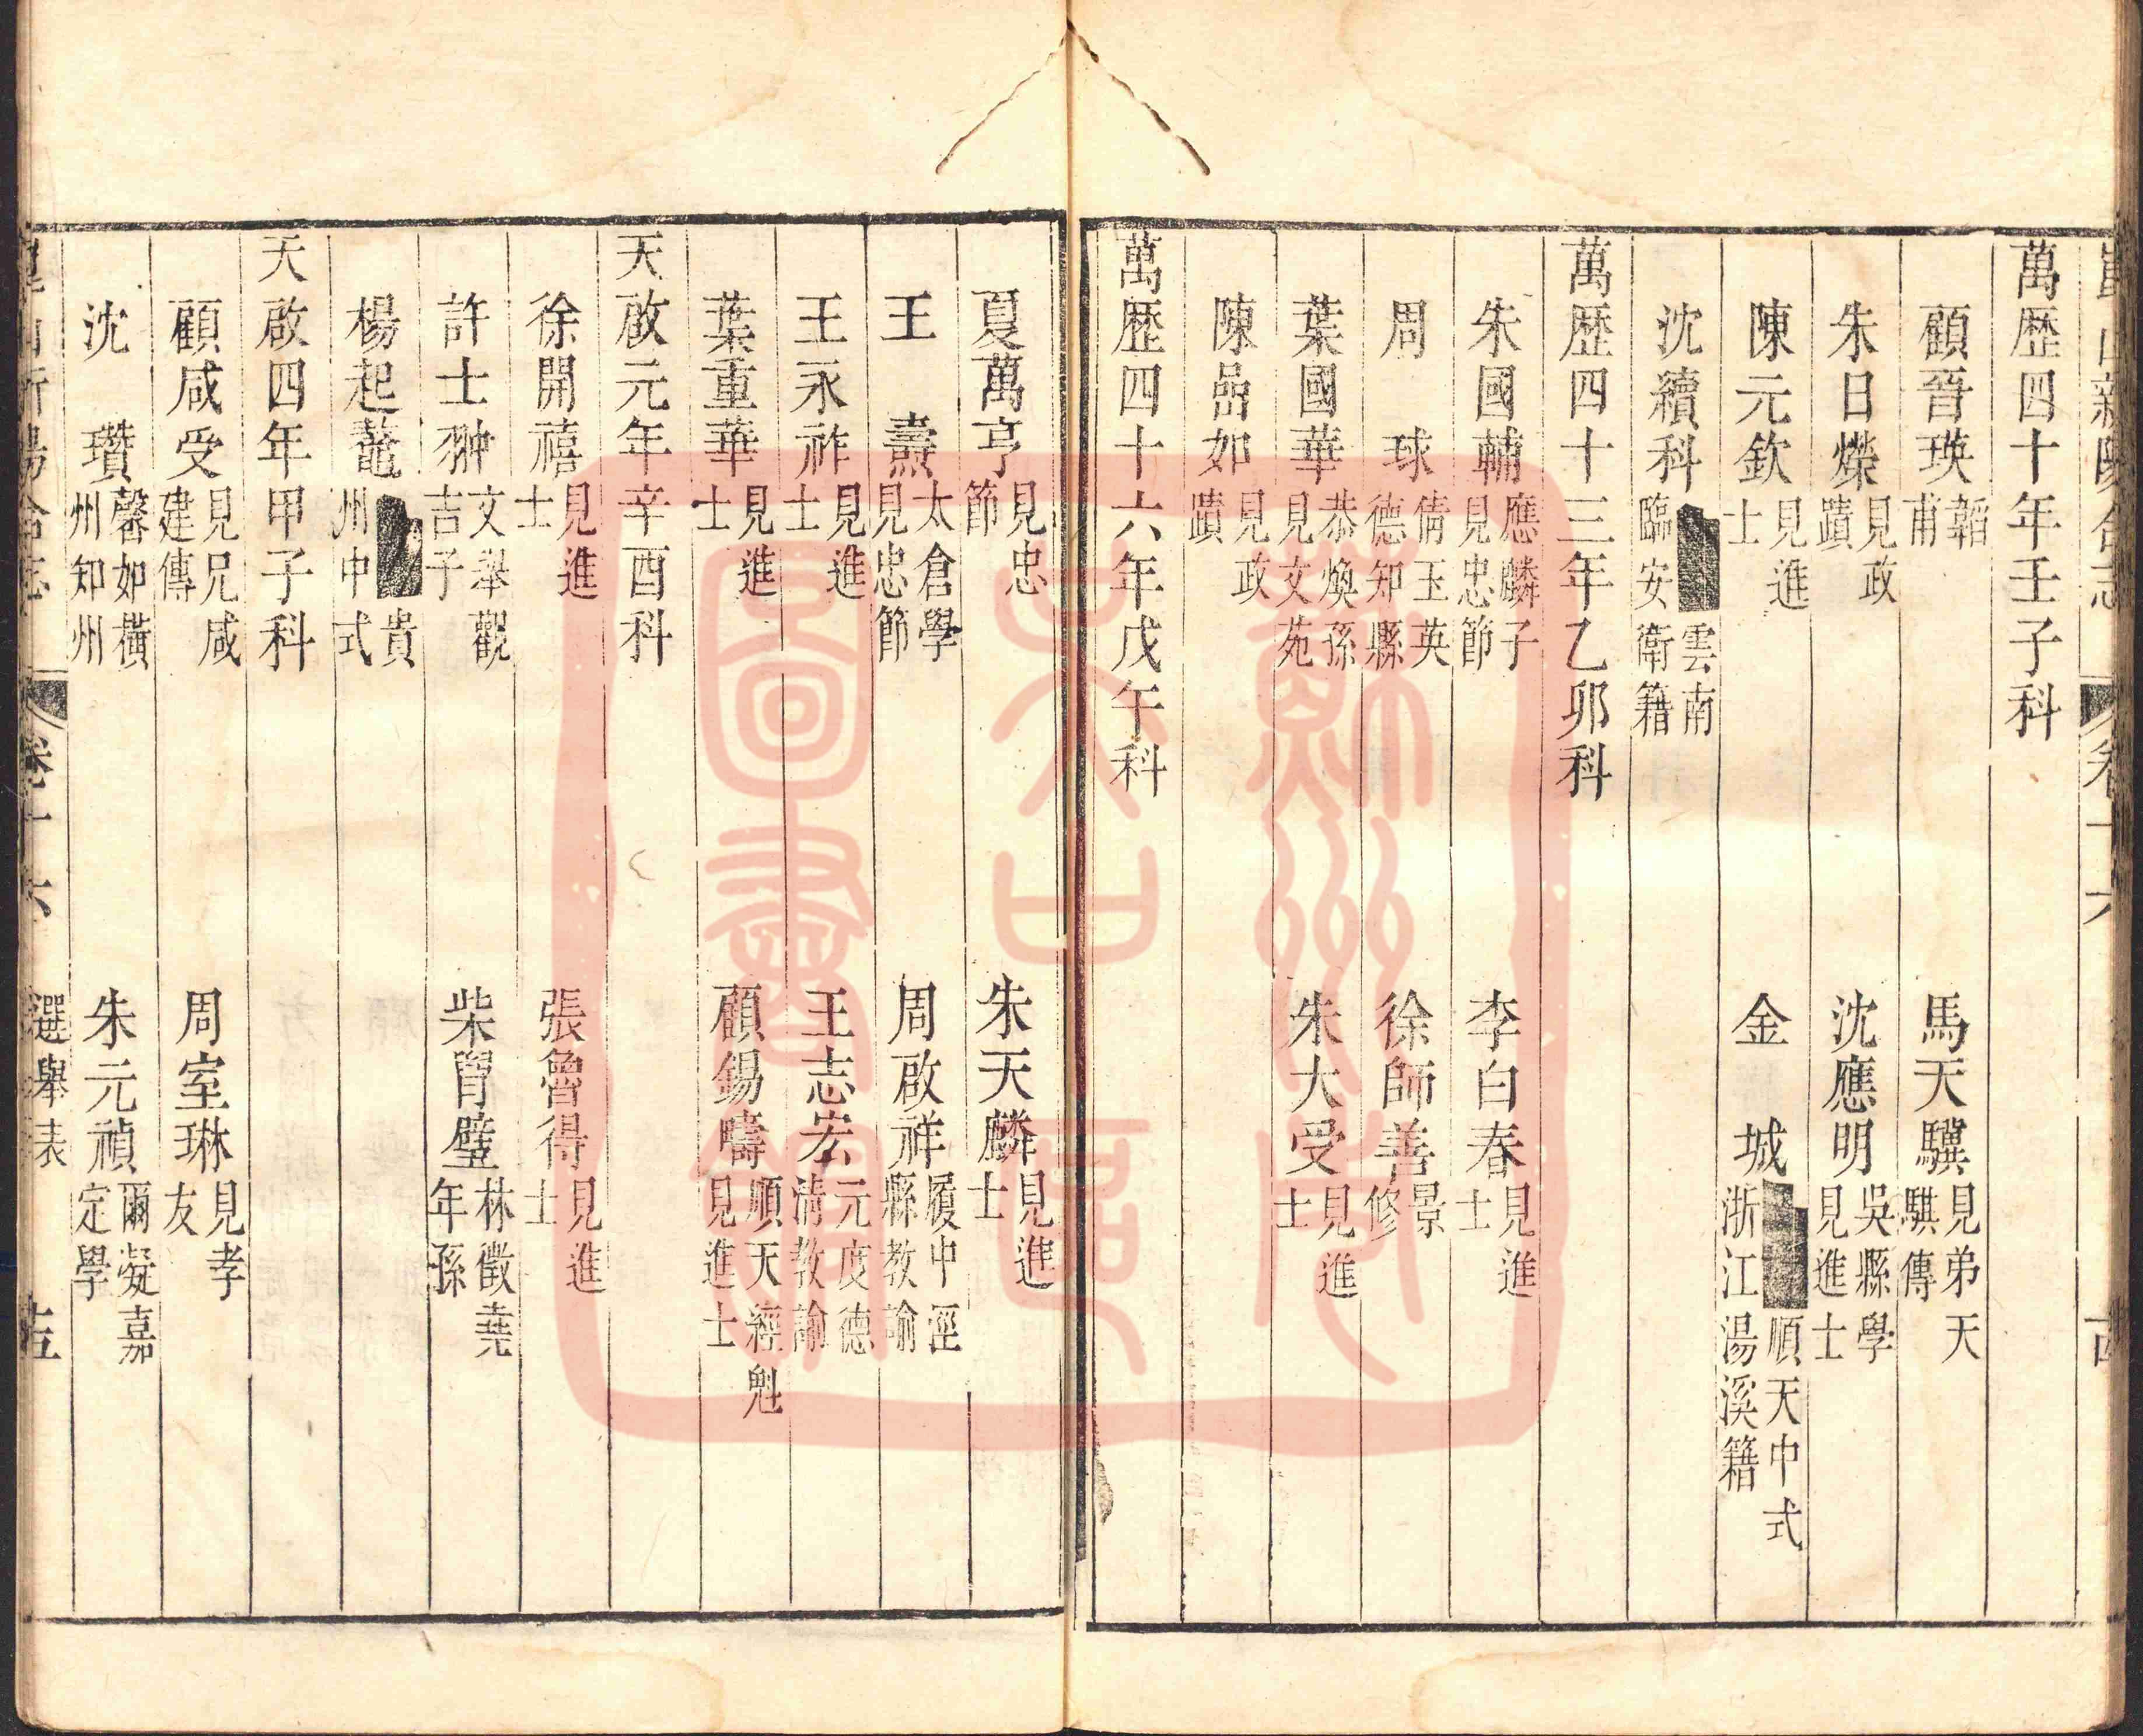 崑山新陽合志 卷十六 古
萬歷四十年壬子科
顧晉瑛 韜甫 馬天驥 見弟天騏傳
朱日燦 見政蹟 沈應明 吳縣學見進士
陳元欽 見進士 金城 順天中式浙江湯溪籍
沈續科 雲南臨安衛籍
萬歷四十三年乙卯科
朱國輔 應麟子見忠節 李白春 見進士
周球 倩玉英德知縣 徐師善 景修
葉國華 恭煥孫見文苑 朱大受 見進士
陳嵒如 見政蹟
萬歷四十六年戊午科
夏萬亨 見忠節 朱天麟 見進士
王燾 太倉學見忠節 周啟祥 履中涇縣教諭
王永祚 見進士 王志宏 元度德清教諭
葉重華 見進士 顧錫疇 順天經魁見進士
天啟元年辛酉科
徐開禧 見進士 張魯得 見進士
許士翀 文舉觀吉子 柴胥璧 林徵堯年孫
楊起鼇 貴州中式
天啟四年甲子科
顧咸受 見兄咸建傳 周室琳 見孝友
沈瓚 馨如橫州知州 朱元禎 爾凝嘉定學
崑山新陽合志 卷十六 選舉表 十五
蘇州
圖書館